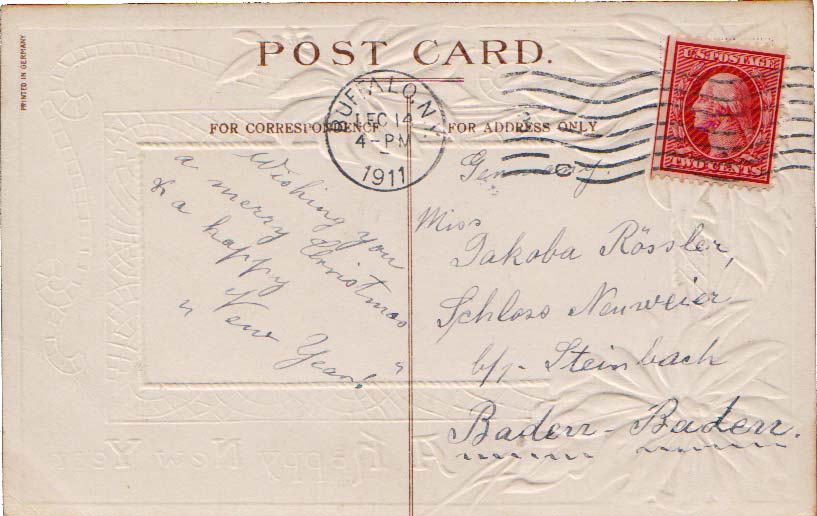 PRINTED IN GERMANY
POST CARD.
BUFFALO, N.Y.
DEC 14
4-PM
1911
U.S. POSTAGE
TWO CENTS
FOR CORRESPONDENCE
FOR ADDRESS ONLY
Wishing you
a merry Christmas
& a happy
" New Year! "
Germany.
Miss
Jakoba Rössler,
Schloss Neuweier
b/- Steinbach
Baden-Baden.
A Happy New Year